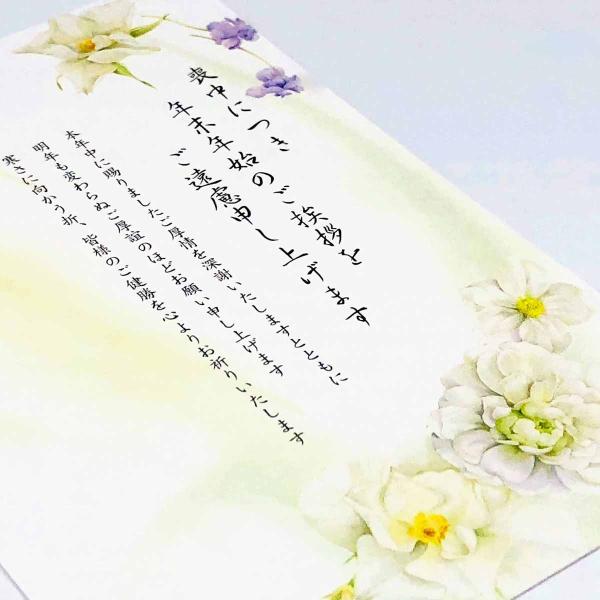 喪中につき
年末年始のご挨拶を
ご遠慮申し上げます
本年中に賜りましたご厚情を深謝いたしますとともに
明年も変わらぬご厚誼のほどお願い申し上げます
寒さに向かう折、皆様のご健勝を心よりお祈りいたします